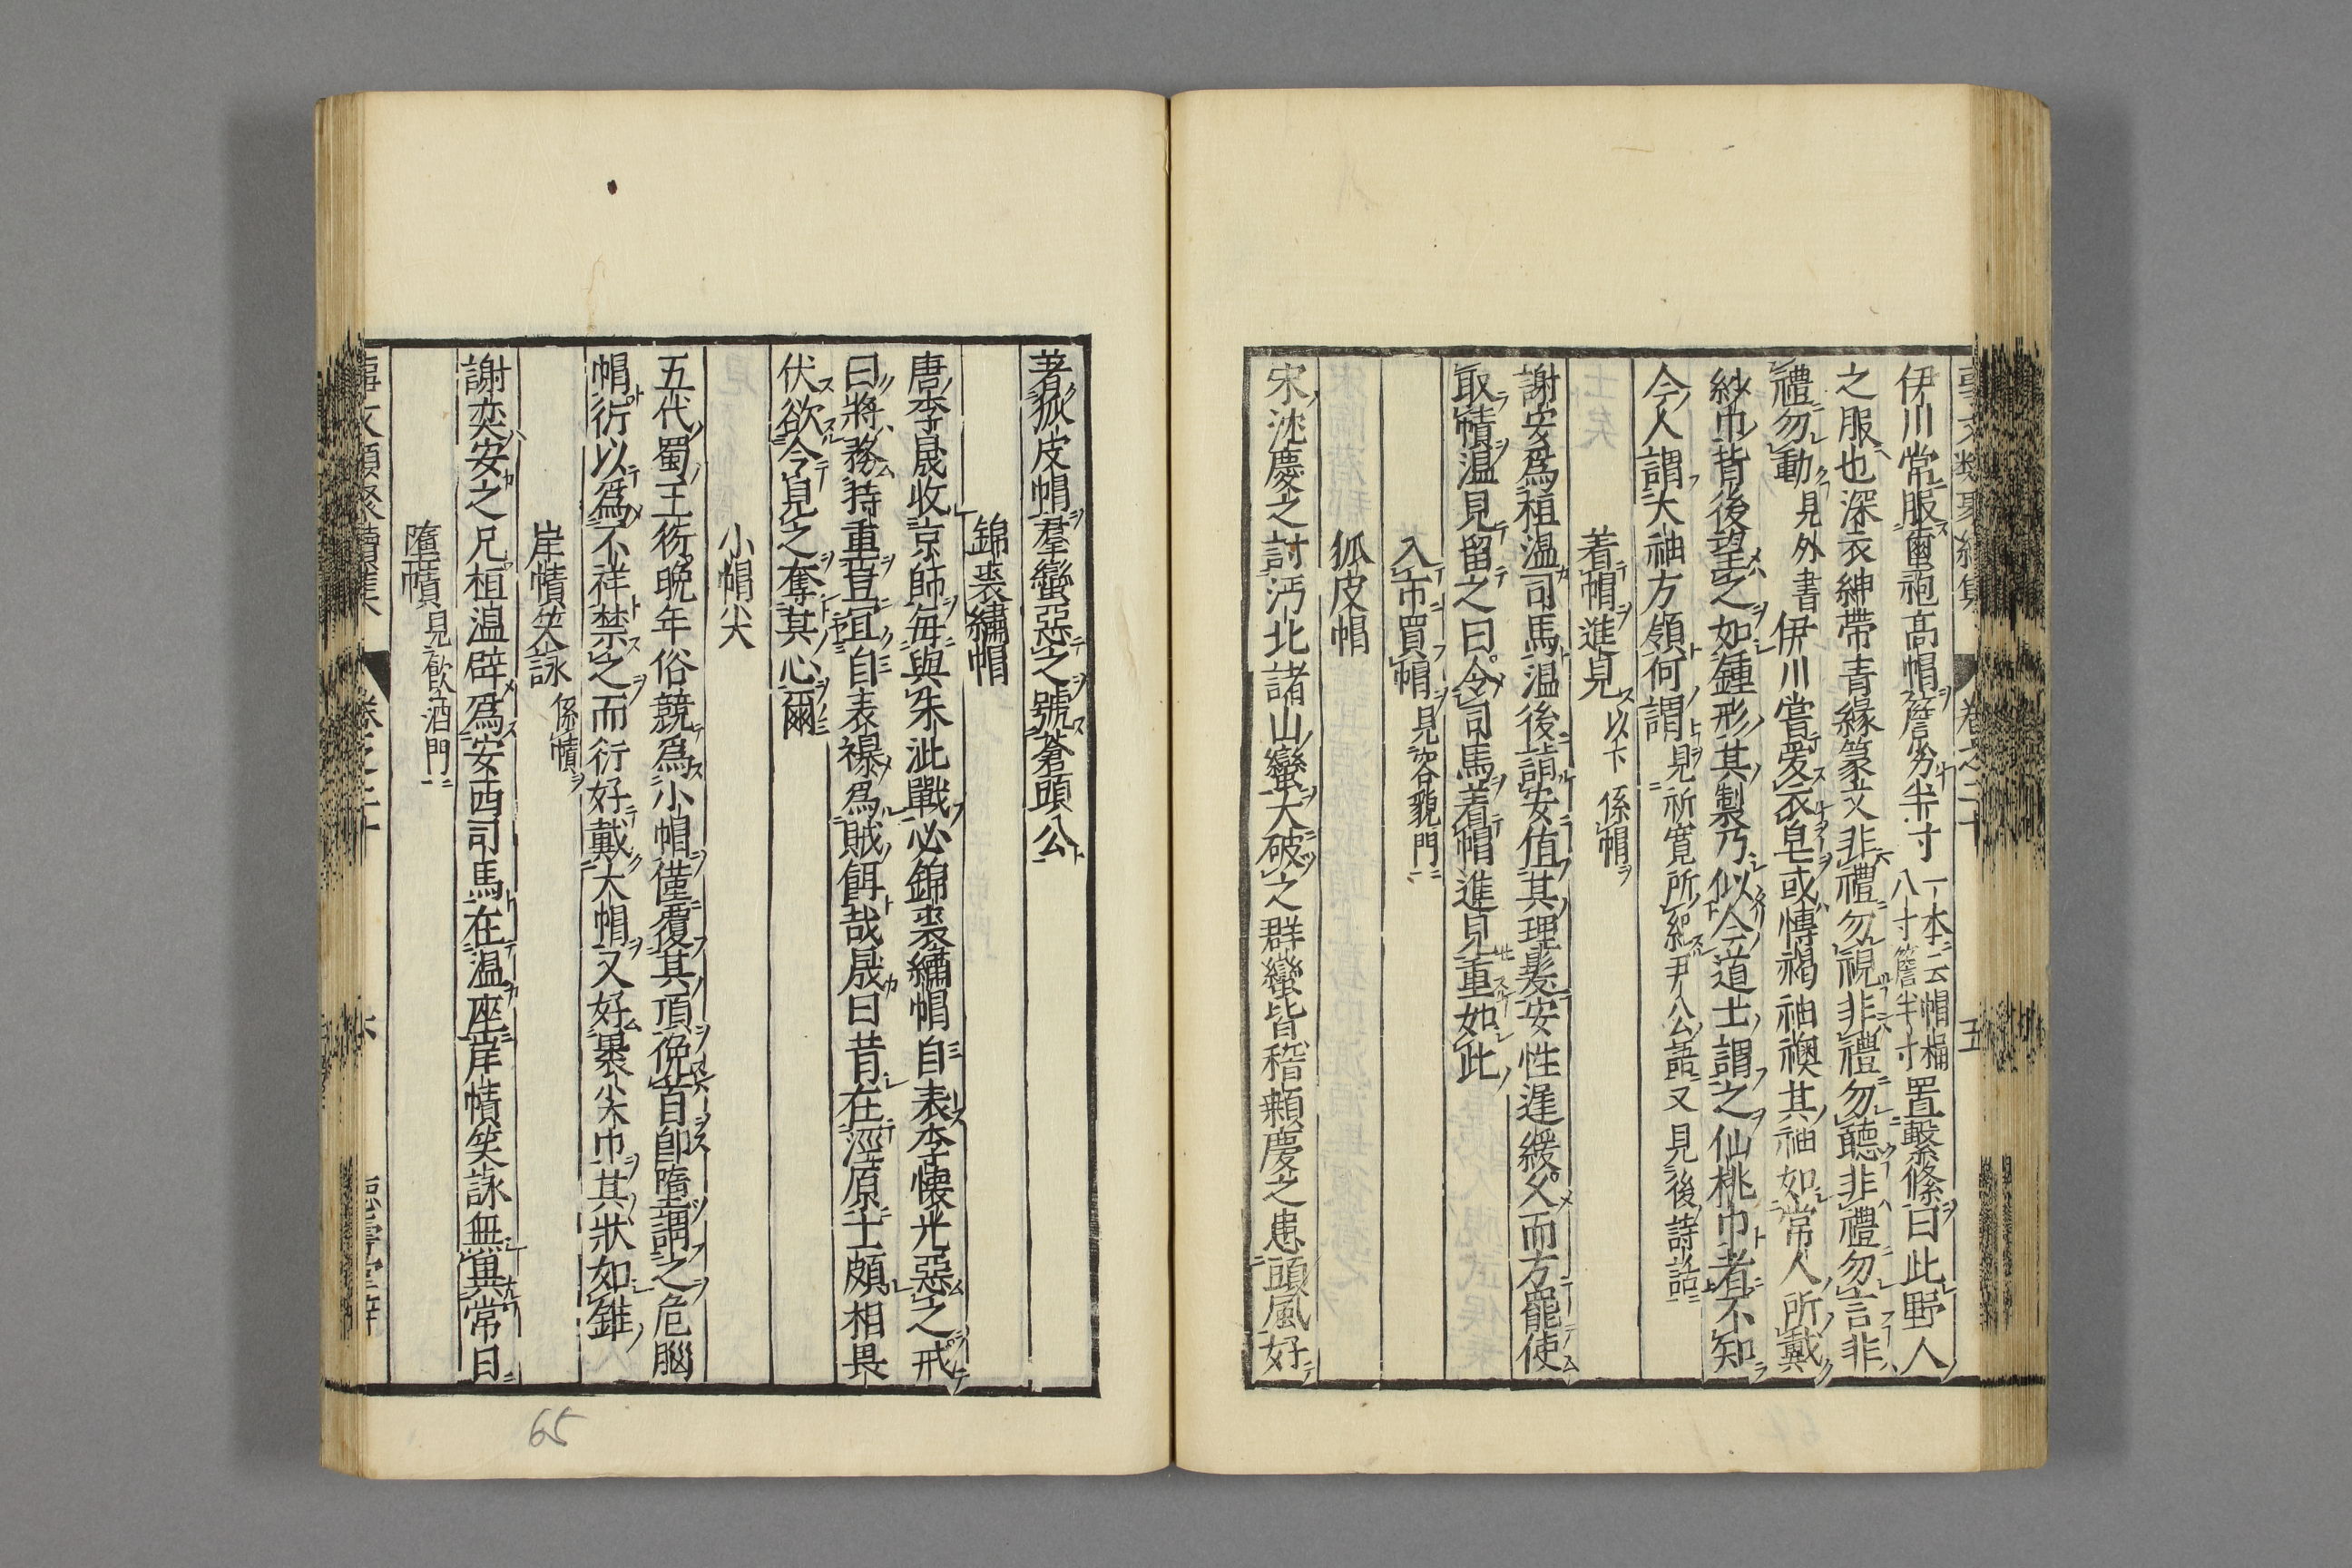 伊川常服䙝袍高帽簷劣半寸一本云帽桶八寸簷半寸置繫絛曰此野人
之服也深衣紳帶青緣篆文非禮勿視非禮勿聽非禮勿言非
禮勿動見外書伊川嘗愛衣皂或慱褐袖襖其袖如常人所戴
紗巾背後望之如鍾形其製乃似今道士謂之仙桃巾者不知
今人謂大袖方領何謂見祈寛所紀尹公語又見後詩話
着帽進見以下係帽
謝安爲桓温司馬温後詣安值其理髮安性遲緩乆而方罷使
取幘温見留之曰令司馬着帽進見重如此
入市買帽見容貌門
狐皮帽
宋沈慶之討沔北諸山蠻大破之群蠻皆稽顙慶之患頭風好
著狐皮帽羣蠻惡之號蒼頭公
錦裘繡帽
唐李晟收京師每與朱泚戰必錦裘繡帽自表李懷光惡之戒
曰將務持重豈宜自表襮爲賊餌哉晟曰昔在涇原士頗相畏
伏欲令見之奪其心爾
小帽尖
五代蜀王衍晩年俗競爲小帽僅覆其頂俛首卽墮謂之危腦
帽衍以爲不祥禁之而衍好戴大帽又好裹尖巾其狀如錐
岸幘笑詠係幘
謝奕安之兄桓温辟爲安西司馬在温座岸幘笑詠無異常日
墮幘見飲酒門
65